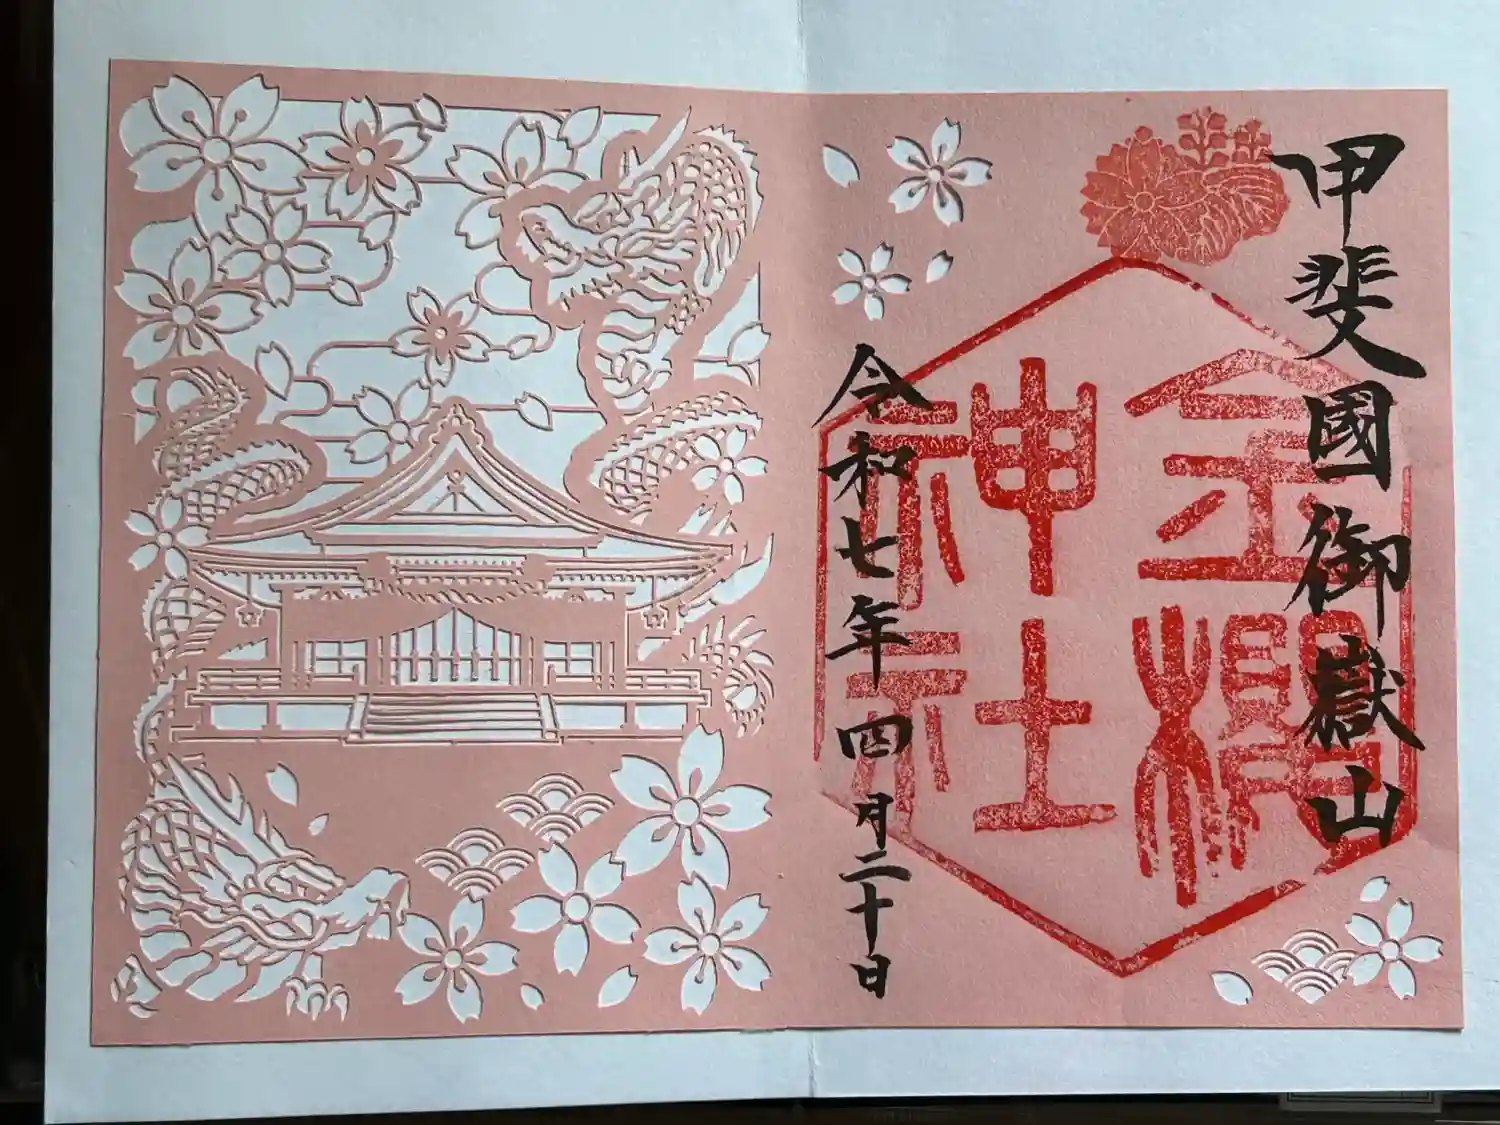 甲斐國御嶽山
金櫻
神社
令和七年四月二十日